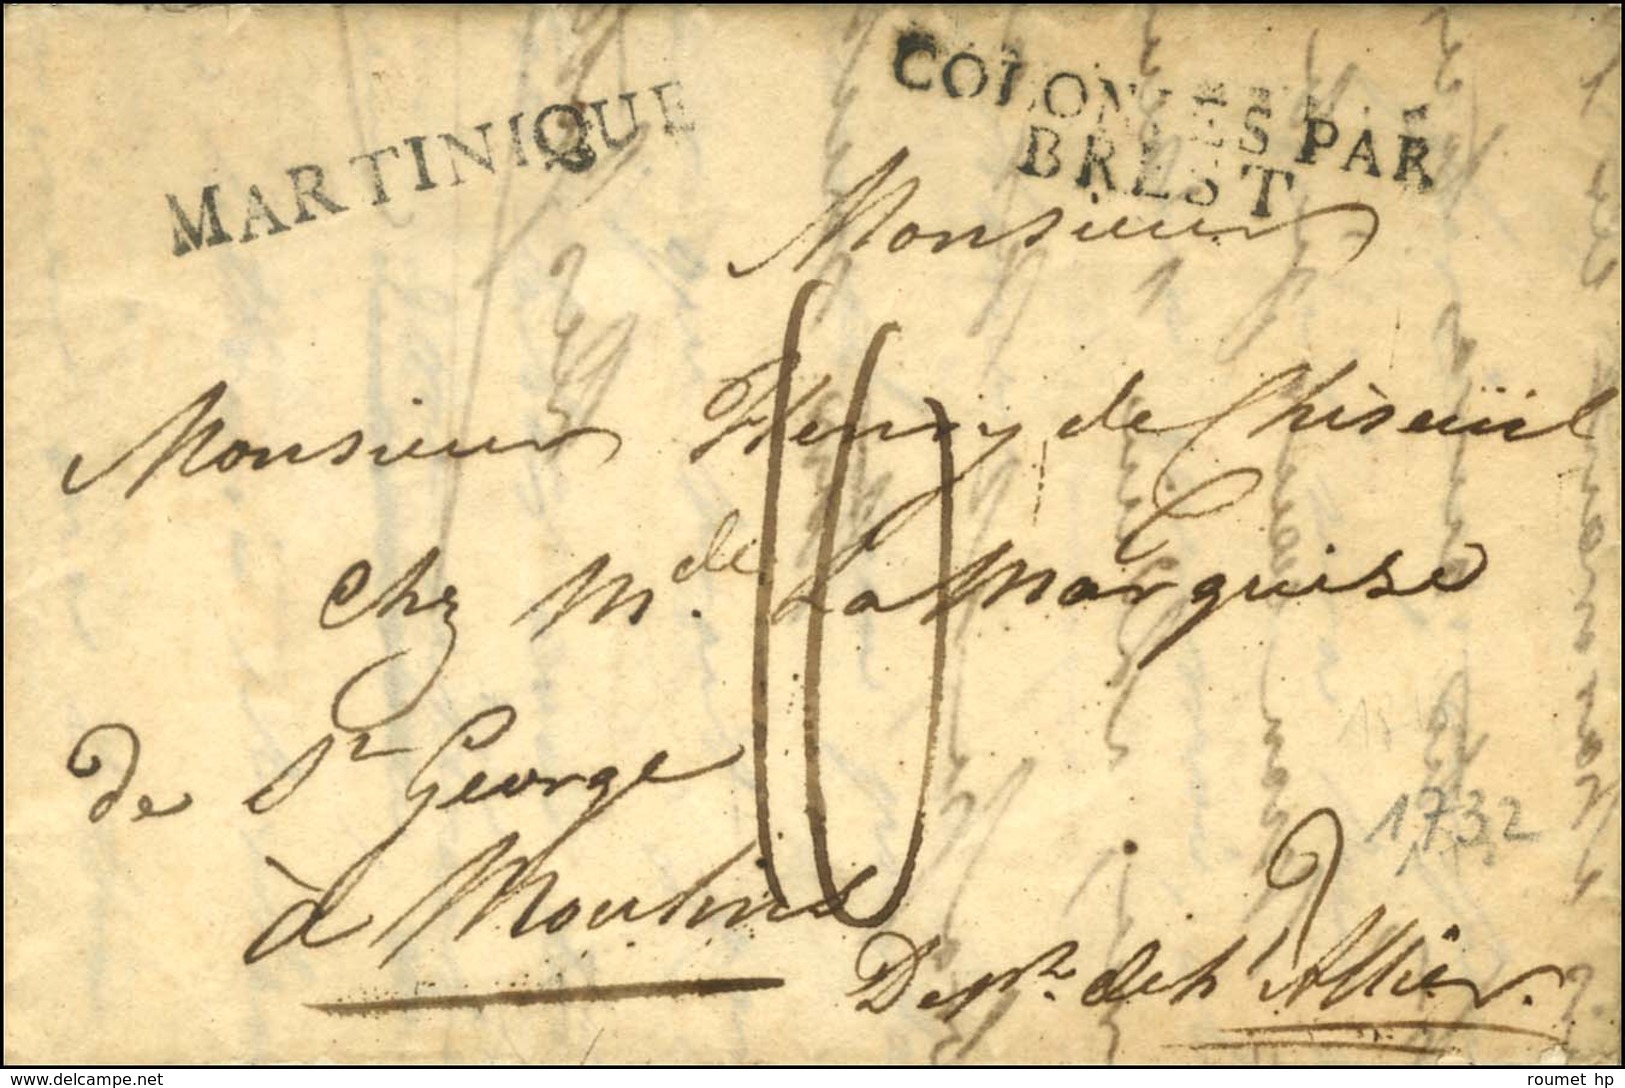 MARTINIQUE
COLONIES PAR
BREST
Monsieur
Monsieur Henry de Chiseüil
chez Mde. de La Marquise
de St George
à Moulins
10
Dept. de l'Allier.
1732
delcampe.net
roumet hp